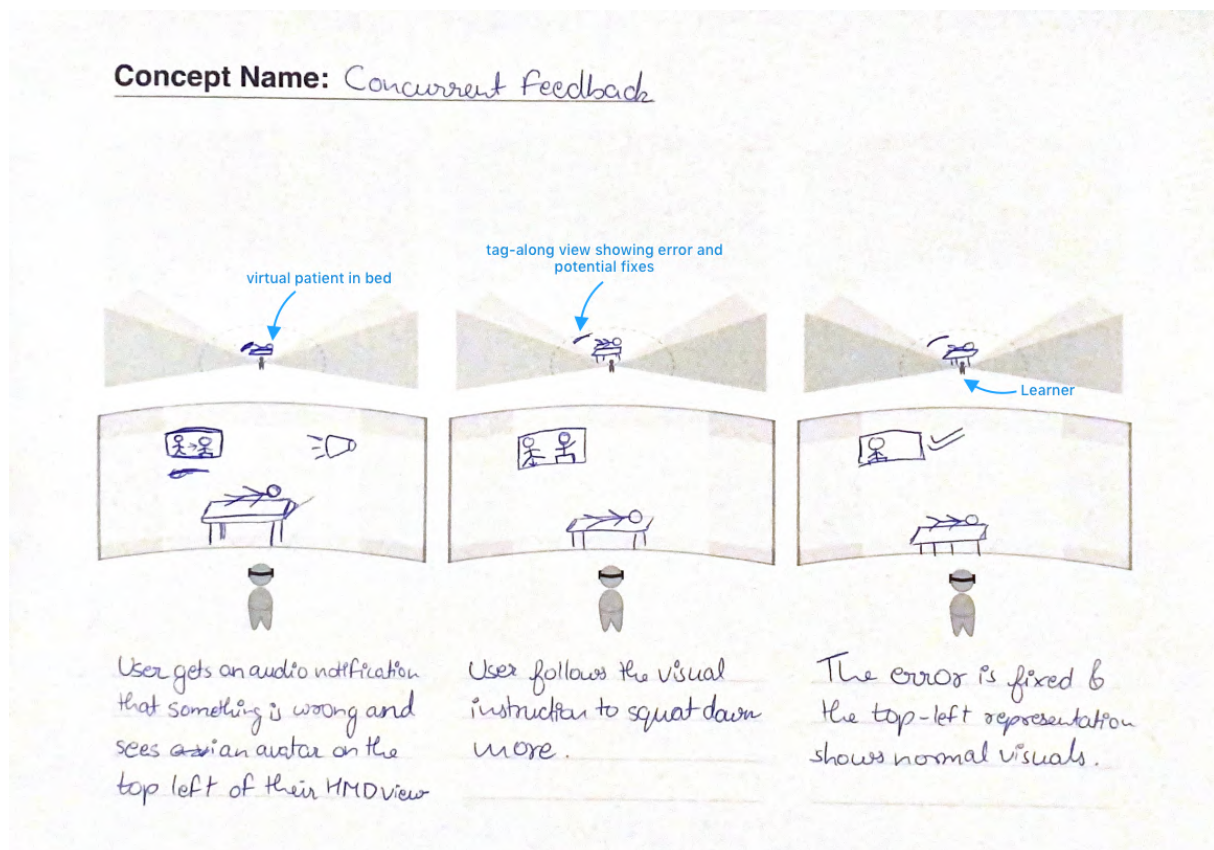 Concept Name: Concurrent Feedback
virtual patient in bed
tag-along view showing error and
potential fixes
Learner
User gets an audio notification
that something is wrong and
sees an avatar on the
top left of their HMD view
User follows the visual
instruction to squat down
more.
The error is fixed &
the top-left representation
shows normal visuals.